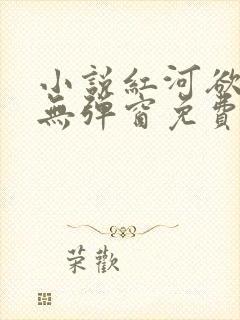 小説紅河欲
無彈窗免費
荣歡